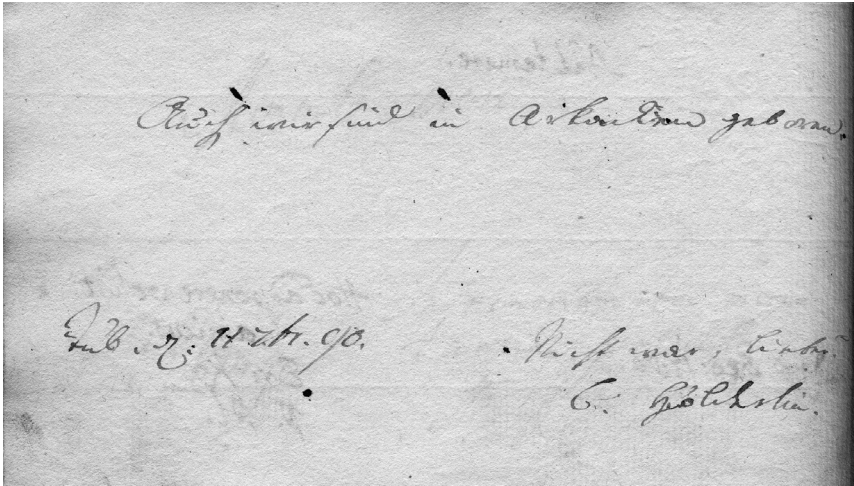 Auch wir sind in Arkadien geboren.
Tüb. d. 7br. 90.
Nicht war, lieber
C. Hölderlin.